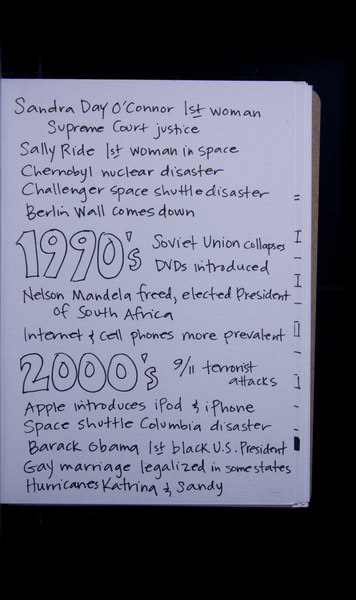 Sandra Day O'Connor 1st woman
Supreme Court justice
Sally Ride 1st woman in space
Chernobyl nuclear disaster
Challenger space shuttle disaster
Berlin Wall comes down
1990's Soviet Union collapses
DVDs introduced
Nelson Mandela freed, elected President
of South Africa
Internet & cell phones more prevalent
2000's 9/11 terrorist
attacks
Apple introduces iPod & iPhone
Space shuttle Columbia disaster
Barack Obama 1st black U.S. President
Gay marriage legalized in some states
Hurricanes Katrina & Sandy